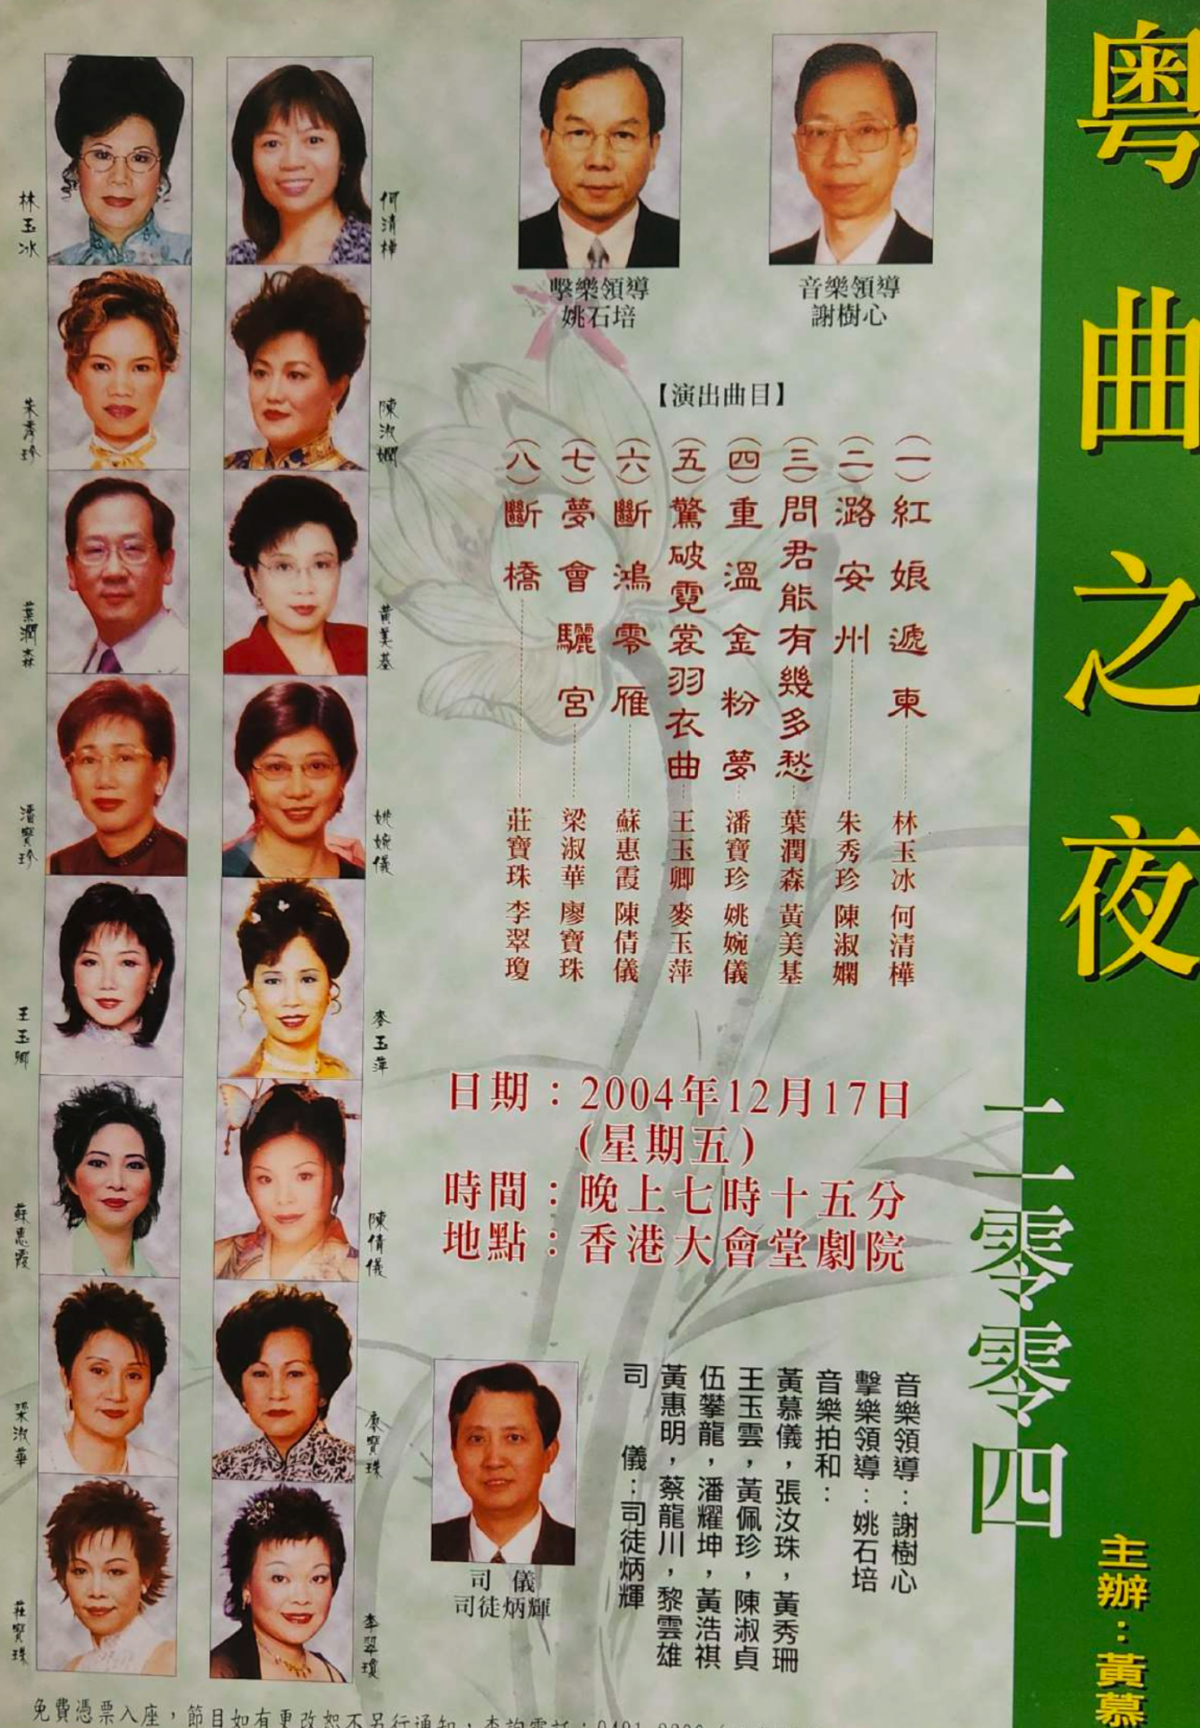 粵曲之夜
二零零四
主辦：黃慕
音樂領導
謝樹心
擊樂領導
姚石培
林玉冰
何清樺
朱秀珍
陳淑嫻
葉潤森
黃美基
潘寶珍
姚婉儀
王玉卿
麥玉萍
蘇惠霞
陳倩儀
梁淑華
廖寶珠
莊寶珠
李翠瓊
【演出曲目】
(一)紅娘遞柬……林玉冰 何清樺
(二)潞安州……朱秀珍 陳淑嫻
(三)問君能有幾多愁…葉潤森 黃美基
(四)重溫金粉夢…潘寶珍 姚婉儀
(五)驚破霓裳羽衣曲…王玉卿 麥玉萍
(六)斷鴻零雁……蘇惠霞 陳倩儀
(七)夢會驪宮……梁淑華 廖寶珠
(八)斷橋……莊寶珠 李翠瓊
日期：2004年12月17日
(星期五)
時間：晚上七時十五分
地點：香港大會堂劇院
音樂領導：謝樹心
擊樂領導：姚石培
音樂拍和：
黃慕儀，張汝珠，黃秀珊
王玉雲，黃佩珍，陳淑貞
伍攀龍，潘耀坤，黃浩祺
黃惠明，蔡龍川，黎雲雄
司　儀：司徒炳輝
司　儀
司徒炳輝
免費憑票入座，節目如有更改恕不另行通知，查詢電話：